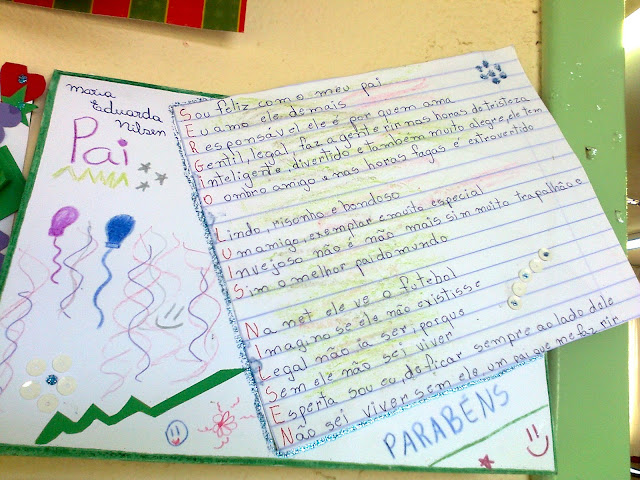 Maria
Eduarda
Nilsen
Pai
Sou feliz com o meu pai
Eu amo ele demais
Responsável ele é por quem ama
Gentil, legal, faz a gente rir nas horas de tristeza
Inteligente, divertido e também muito alegre, ele tem
O ombro amigo e nas horas fagas é extrovertido
Lindo, risonho e bondoso
Um amigo, exemplar e muito especial
Invejoso não é não mais sim muito trapalhão e
Sim o melhor pai do mundo
Na net ele ve o futebol
Imagino se ele não existisse
Legal não ia ser, porque
Sem ele não sei viver
Esperta sou eu, de ficar sempre ao lado dele
Não sei viver sem ele, um pai que me faz rir
PARABÉNS